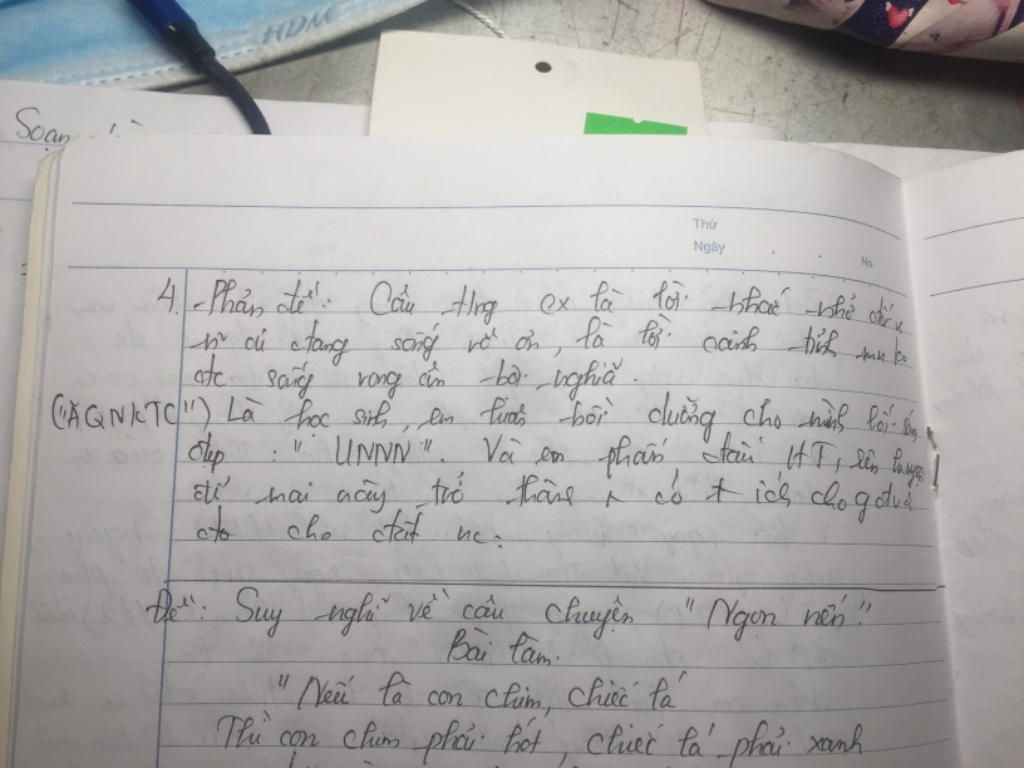 HDM
Soạn
Thứ
Ngày
No.
4. - Phản đề: Câu ttng ex là lời nhắc nhở đối v
n~ ai đang sống vô ơn, là lời cảnh tỉnh
sống vong ân bội nghĩa.
("ĂQNKTC") Là học sinh, em luôn bồi dưỡng cho mình lối sống
đẹp : "UNNN". Và em phấn đấu HT, rèn luyện
để mai này trở thành có + ích cho gđ và
cho đất nc.
Đề: Suy nghĩ về câu chuyện "Ngọn nến".
Bài làm.
"Nếu là con chim, chiếc lá
Thì con chim phải hót, chiếc lá phải xanh